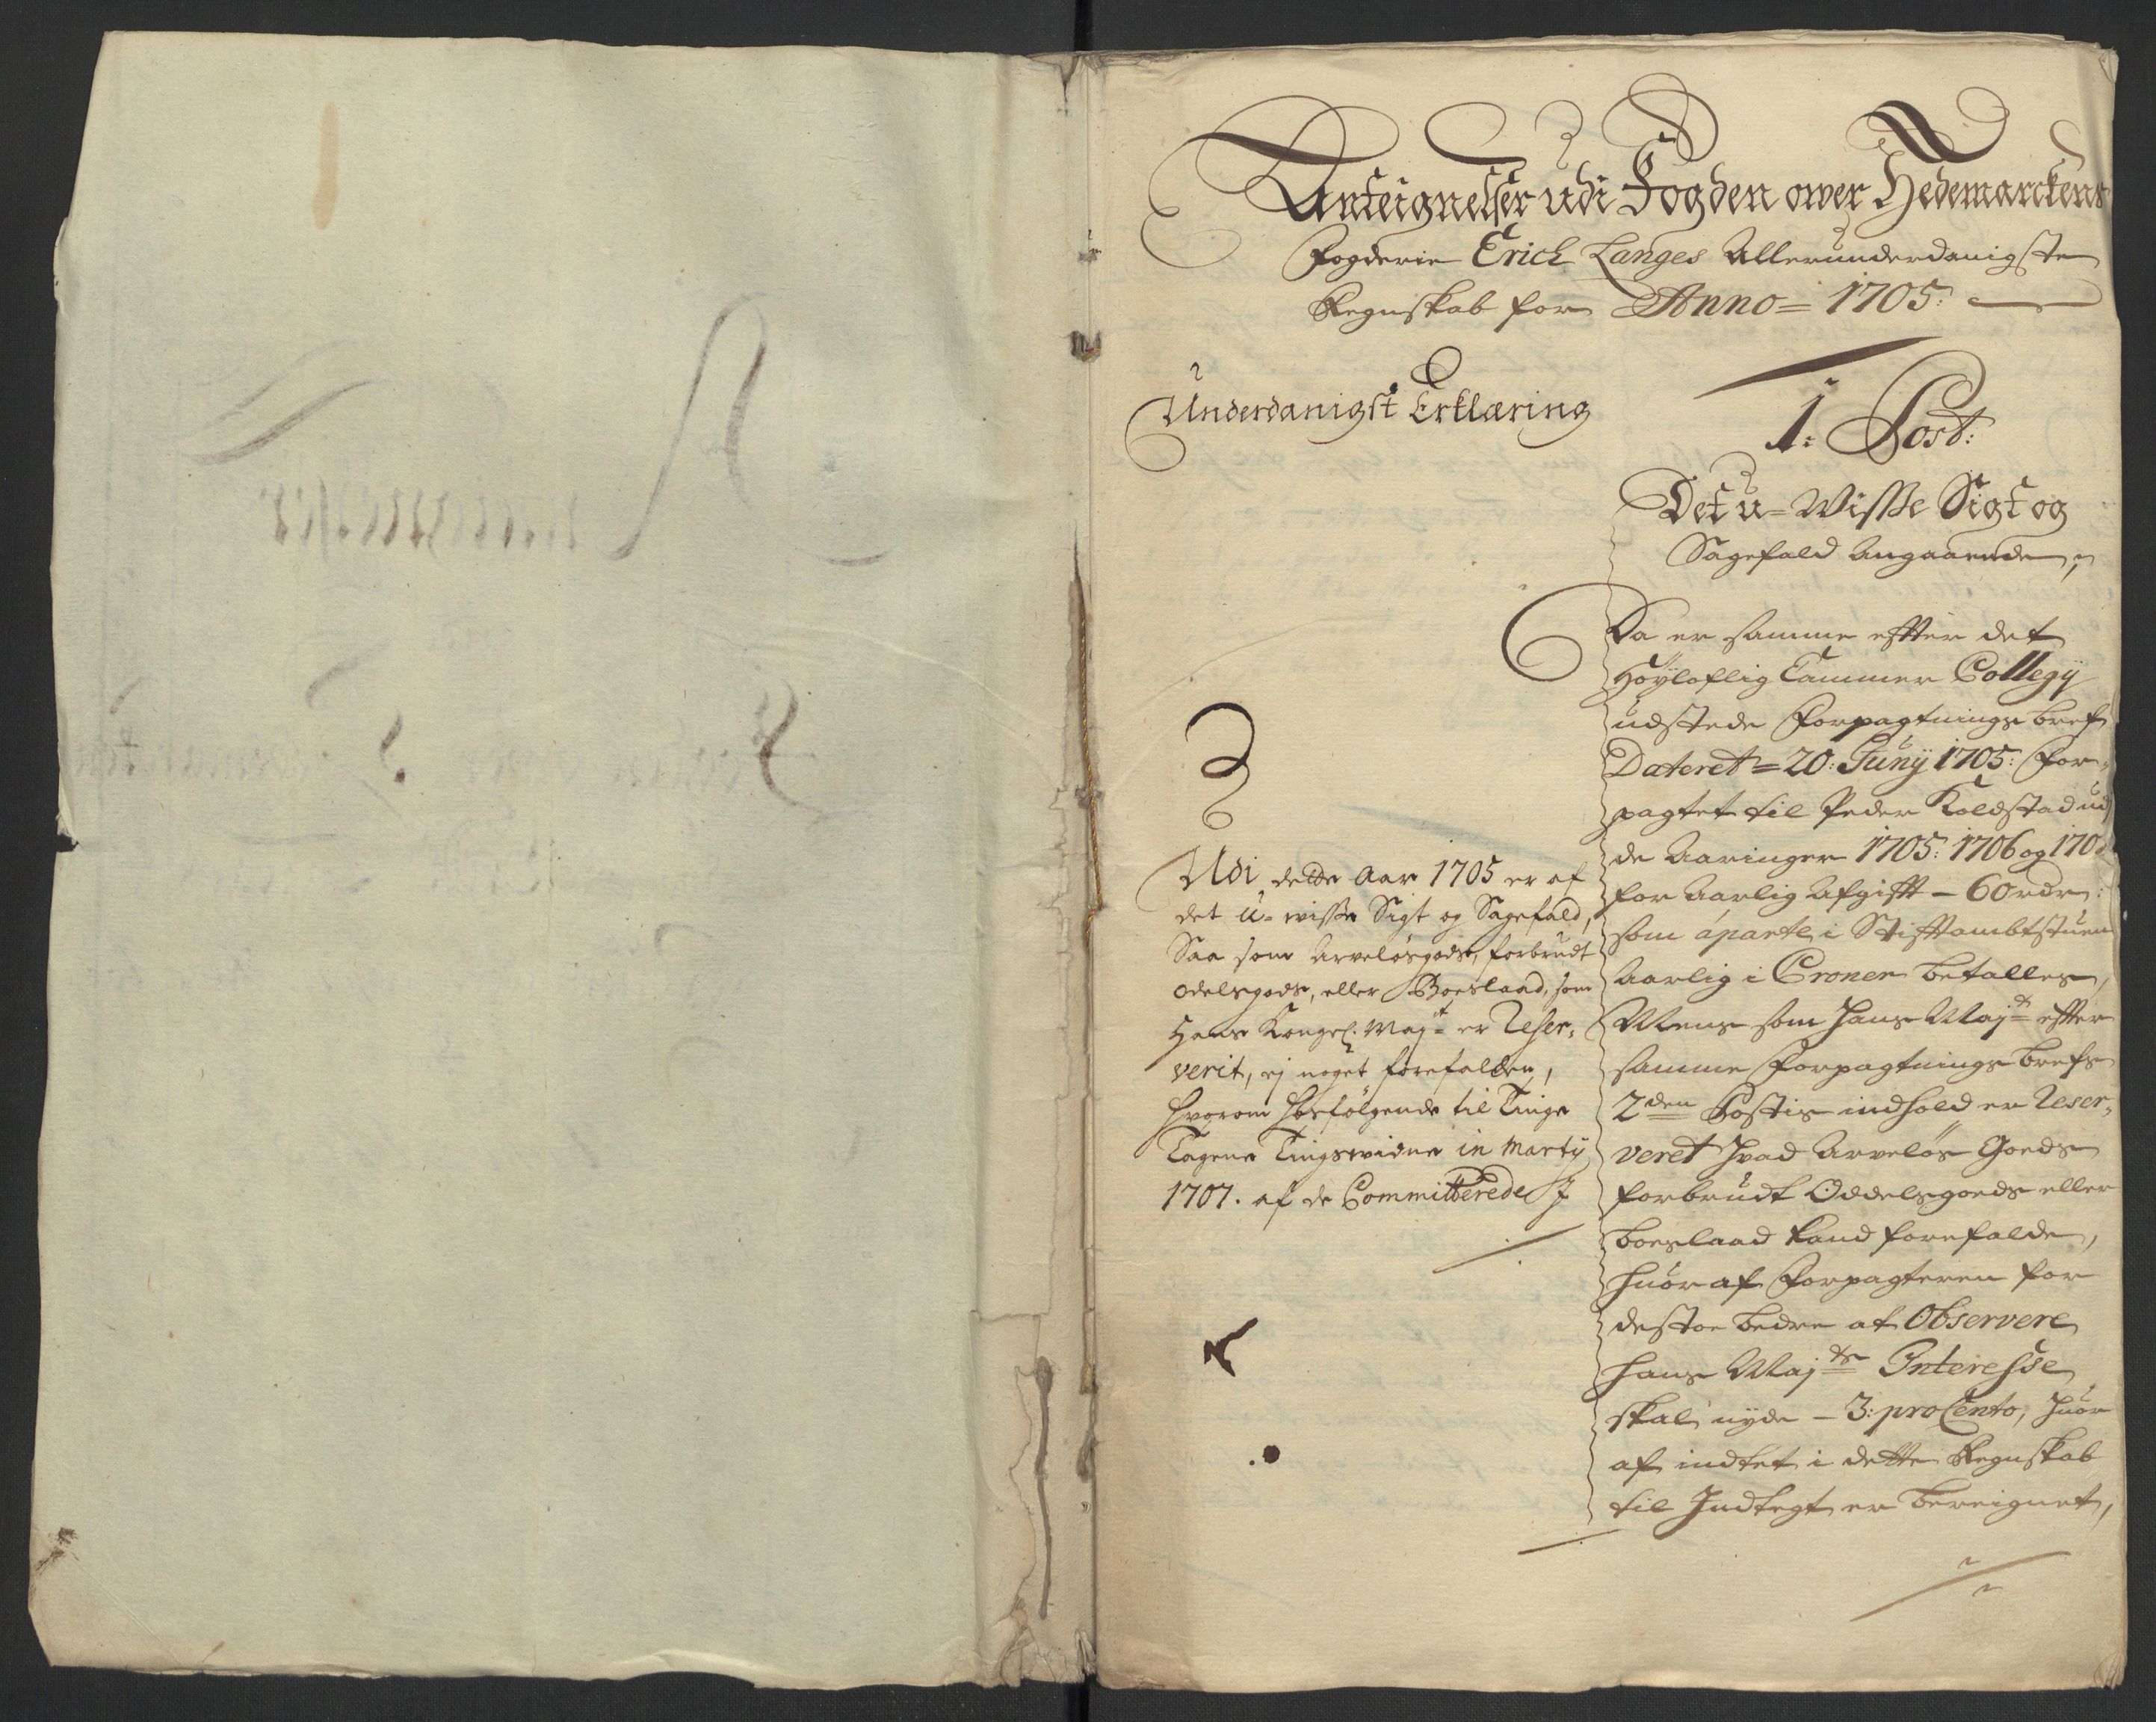 Anteignelser udi Fogden ower Hedemarckens
Fogderie Erich Langes Allerunderdanigste
Regnskab for Anno = 1705:
Underdanigst Erklæring
1: Post:
Det u= Wisse Sigt og
Sagefald Angaaende,
Da er samme effter det
Höyloflig Cammer Collegij
udstede Forpagtnings bref
Dateret = 20: Junij 1705: for=
pagtet til Peder Koldstad ud
de Aaringer 1705: 1706 og 170
for Aarlig Afgifft – 60 rdr:
som áparte i Stifftambtstuen
Aarlig i Croner betalles,
Mens som Hans Maj:t effter
samme Forpagtnings brefs
2den Postis indhold er Reser=
veret Hvad Arveløs Goeds
forbrudt Oddelsgoeds eller
boeslaad kand forefalde,
huoraf Forpagteren for
destoe bedre at Observere
Hans Maj:ts Interesse
skal nyde – 3: pro Cento, huor
af indtet i dette Regnskab
til Indtegt er bereignet,
Udi dette Aar 1705 er af
det u= wisse Sigt og Sagefald,
Saa som Arveløsgods, forbrudt
odelsgods, eller Boeslaad, som
Hans Kongel: Maj:t er Reser=
verit, ej noget forefalden,
Hvorom Hosfølgende til Tinge
Tagene Tingswidne in Martij
1707. af de Committerede